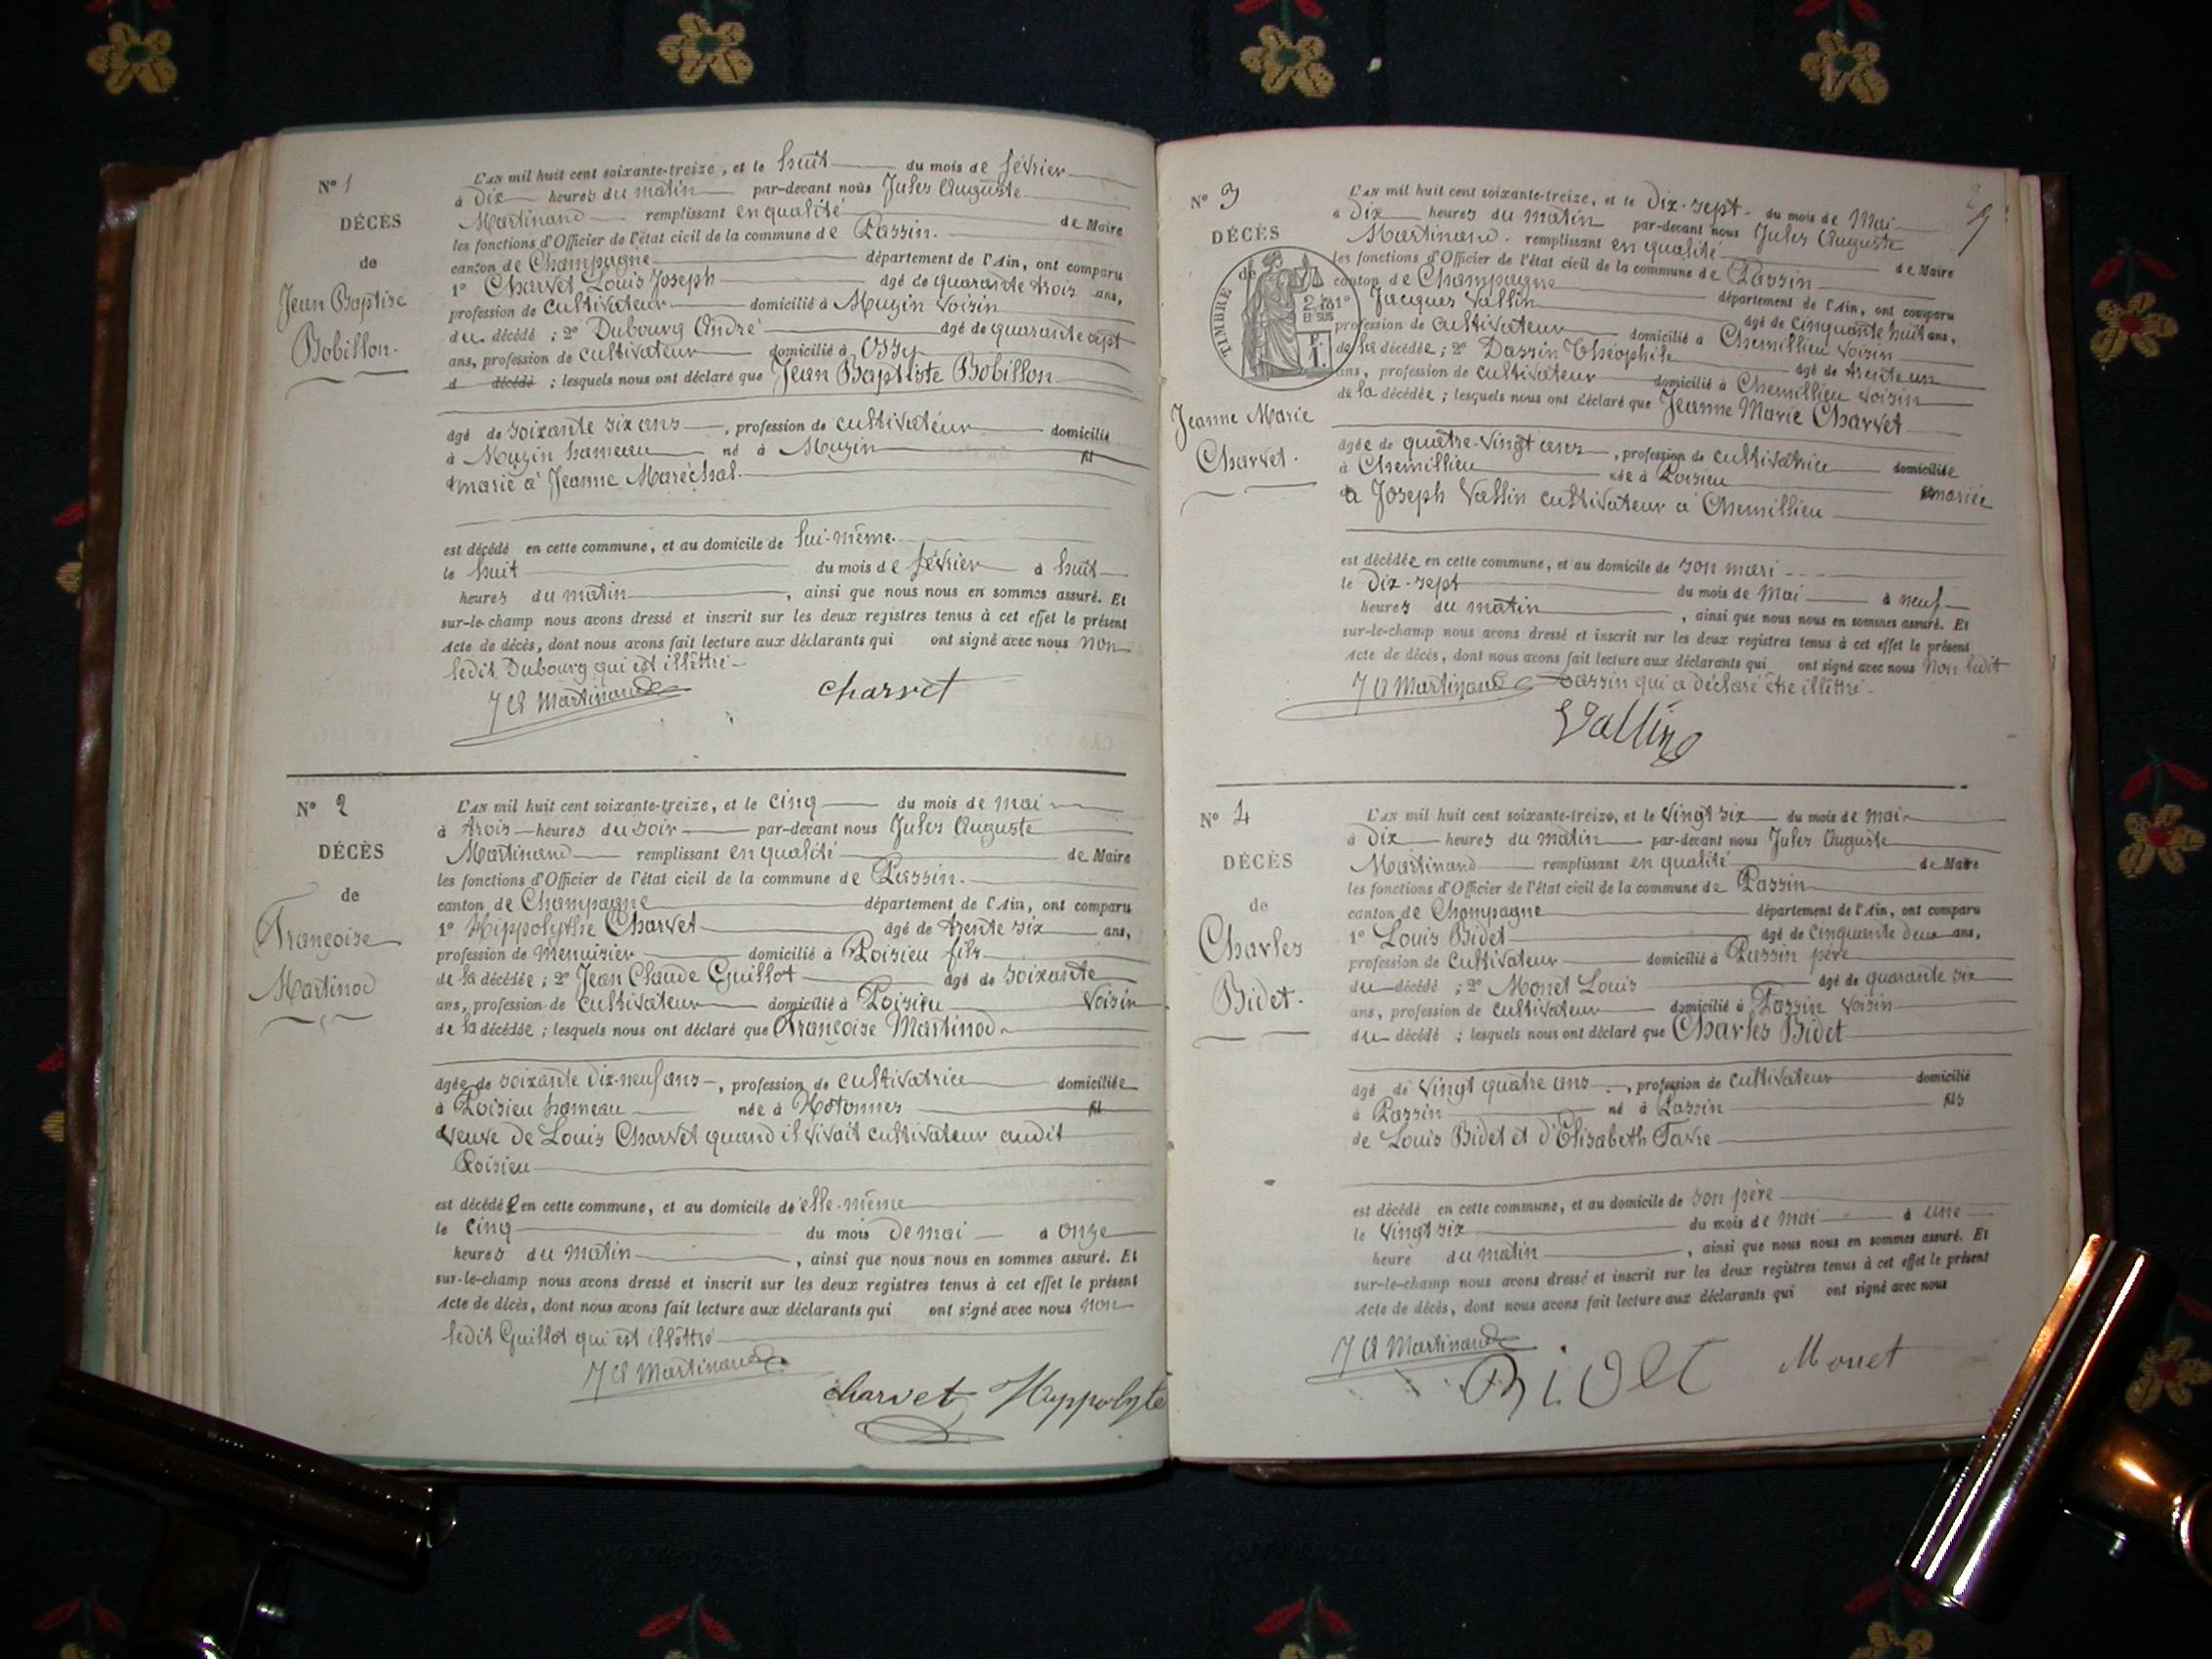 Nº 1
DÉCÈS
de
Jean Baptise
Bobillon.
L'AN mil huit cent soixante-treize, et le huit du mois de février
à Dix heures du matin par-devant nous Jules Auguste
Martinand remplissant en qualité de Maire
les fonctions d'Officier de l'état civil de la commune de Passin.
canton de Champagne département de l'Ain, ont comparu
1º Charvet Louis Joseph âgé de quarante trois ans,
profession de cultivateur domicilié à Muzin voisin
du décédé ; 2º Dubourg André âgé de quarante sept
ans, profession de cultivateur domicilié à Ossy
d décédé ; lesquels nous ont déclaré que Jean Baptiste Bobillon
âgé de soixante six ans, profession de cultivateur domicilié
à Muzin hameau né à Muzin fil
marié à Jeanne Maréchal.
est décédé en cette commune, et au domicile de lui-même.
le huit du mois de février à huit
heures du matin, ainsi que nous nous en sommes assuré. Et
sur-le-champ nous avons dressé et inscrit sur les deux registres tenus à cet effet le présent
Acte de décès, dont nous avons fait lecture aux déclarants qui ont signé avec nous non
ledit Dubourg qui est illêttré
J A Martinand charvet
Nº 2
DÉCÈS
de
Françoise
Martinod
L'AN mil huit cent soixante-treize, et le cinq du mois de mai
à trois heures du soir par-devant nous Jules Auguste
Martinand remplissant en qualité de Maire
les fonctions d'Officier de l'état civil de la commune de Passin.
canton de Champagne département de l'Ain, ont comparu
1º Hippolythe Charvet âgé de trente six ans,
profession de menuisier domicilié à Poisieu fils
de la décédée ; 2º Jean Claude Guillot âgé de soixante
ans, profession de cultivateur domicilié à Poisieu voisin
de la décédée ; lesquels nous ont déclaré que Françoise Martinod
âgée de soixante dix-neuf ans, profession de cultivatrice domiciliée
à Poisieu hameau née à Hotonnes fil
veuve de Louis Charvet quand il vivait cultivateur audit
Poisieu
est décédée en cette commune, et au domicile de elle-même
le cinq du mois de mai à onze
heures du matin, ainsi que nous nous en sommes assuré. Et
sur-le-champ nous avons dressé et inscrit sur les deux registres tenus à cet effet le présent
Acte de décès, dont nous avons fait lecture aux déclarants qui ont signé avec nous non
ledit Guillot qui est illêttré
J A Martinand
charvet Hyppolyte
Nº 3
DÉCÈS
de
TIMBRE
Jeanne Marie
Charvet.
L'AN mil huit cent soixante-treize, et le Dix-sept du mois de Mai
à Dix heures du matin par-devant nous Jules Auguste
Martinand. remplissant en qualité de Maire
les fonctions d'Officier de l'état civil de la commune de Passin
canton de Champagne département de l'Ain, ont comparu
1º Jacques Vallin âgé de cinquante huit ans,
profession de cultivateur domicilié à Chemillieu voisin
de la décédée ; 2º Dassin Théophile âgé de trente un
ans, profession de cultivateur domicilié à Chemillieu voisin
de la décédée ; lesquels nous ont déclaré que Jeanne Marie Charvet
âgée de quatre-vingt ans, profession de cultivatrice domiciliée
à Chemillieu née à Poisieu mariée
à Joseph Vallin cultivateur à Chemillieu
est décédée en cette commune, et au domicile de son mari
le dix-sept du mois de Mai à neuf
heures du matin, ainsi que nous nous en sommes assuré. Et
sur-le-champ nous avons dressé et inscrit sur les deux registres tenus à cet effet le présent
Acte de décès, dont nous avons fait lecture aux déclarants qui ont signé avec nous non ledit
J A Martinand Dassin qui a déclaré être illêttré.
Vallin
Nº 4
DÉCÈS
de
Charles
Bidet.
L'AN mil huit cent soixante-treize, et le vingt six du mois de mai
à dix heures du matin par-devant nous Jules Auguste
Martinand remplissant en qualité de Maire
les fonctions d'Officier de l'état civil de la commune de Passin
canton de Champagne département de l'Ain, ont comparu
1º Louis Bidet âgé de cinquante deux ans,
profession de cultivateur domicilié à Passin père
du décédé ; 2º Monet Louis âgé de quarante six
ans, profession de cultivateur domicilié à Passin voisin
du décédé ; lesquels nous ont déclaré que Charles Bidet
âgé de vingt quatre ans, profession de cultivateur domicilié
à Passin né à Passin fils
de Louis Bidet et d'Elisabeth Favre
est décédé en cette commune, et au domicile de son père
le vingt six du mois de mai à une
heure du matin, ainsi que nous nous en sommes assuré. Et
sur-le-champ nous avons dressé et inscrit sur les deux registres tenus à cet effet le présent
Acte de décès, dont nous avons fait lecture aux déclarants qui ont signé avec nous
J A Martinand Bidet Monet